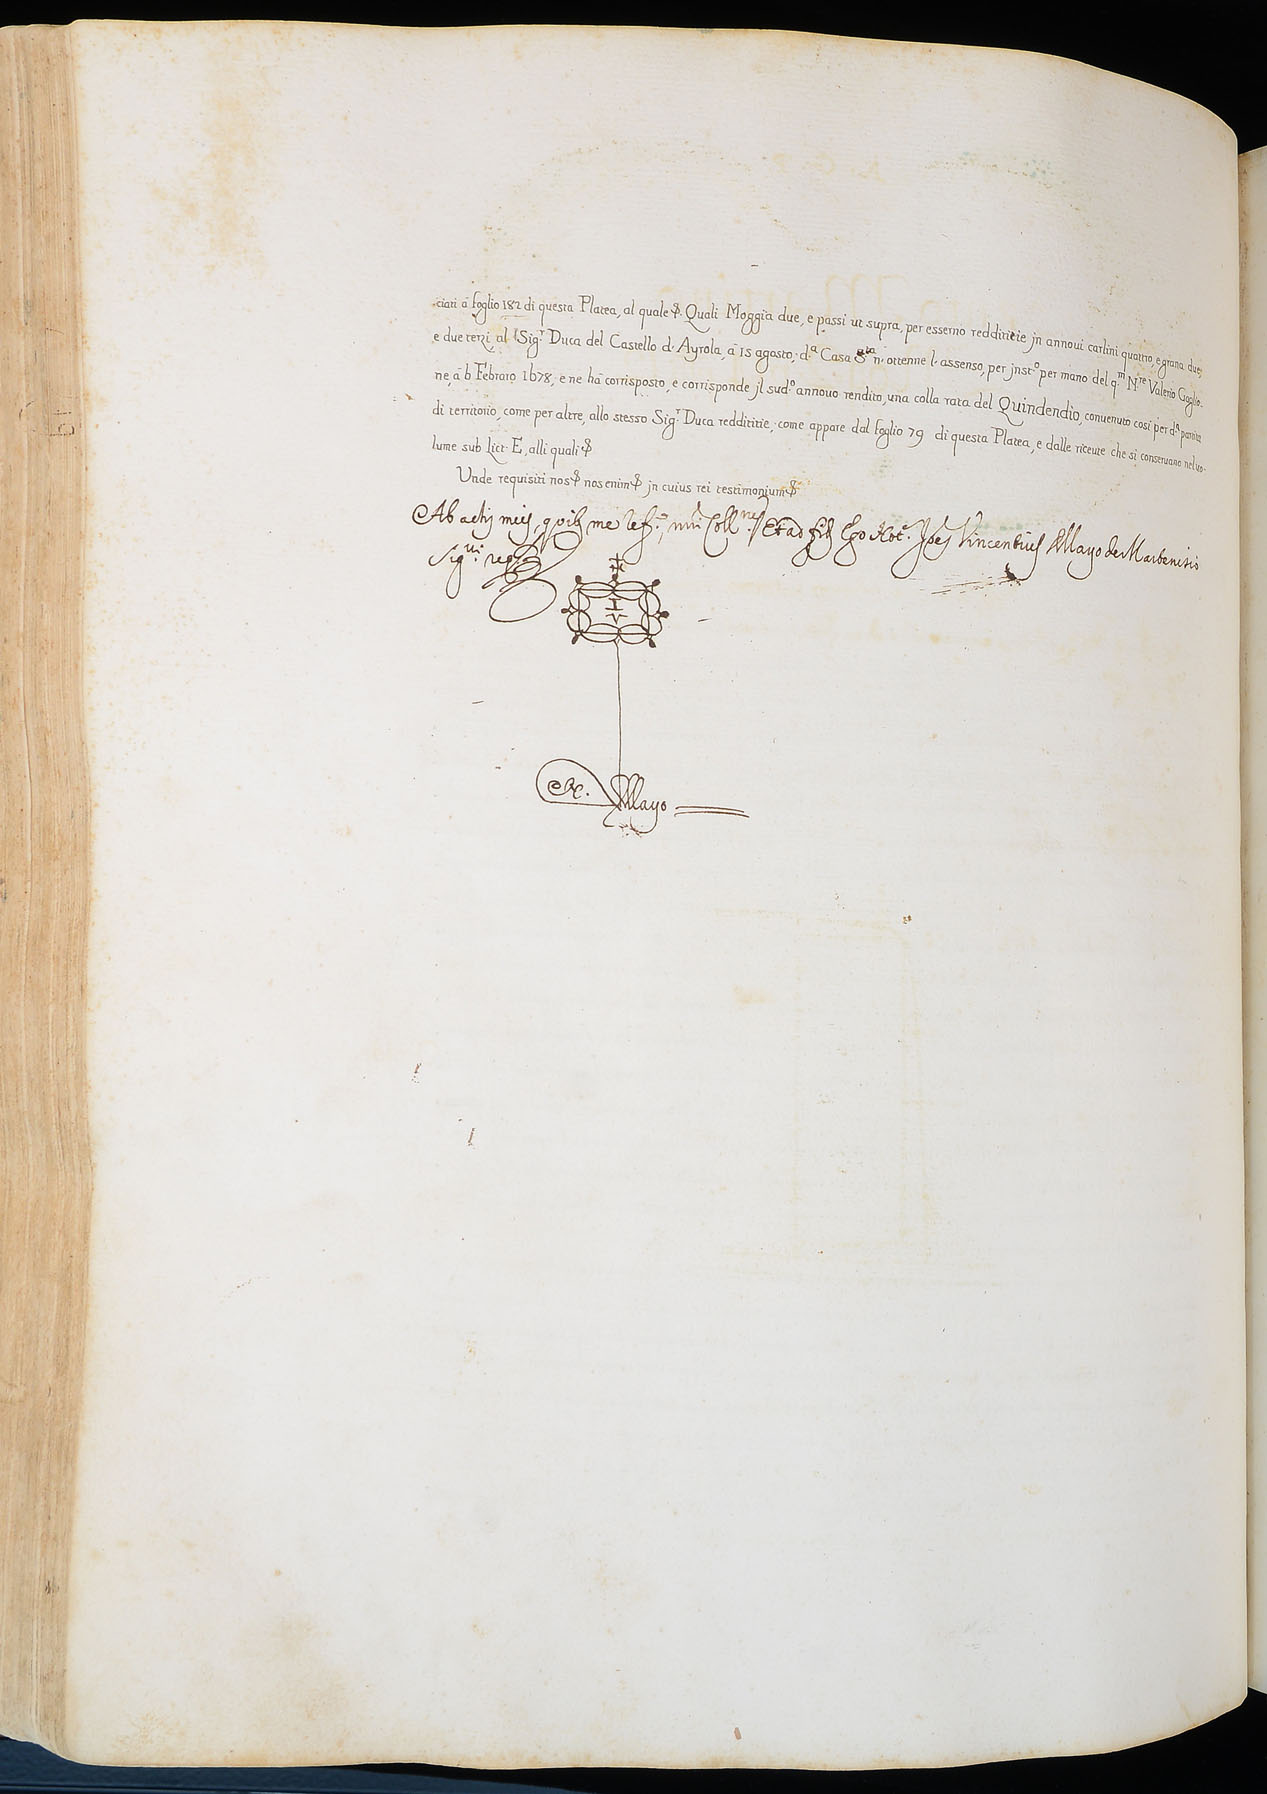 ciati à foglio 182 di questa Platea, al quale &. Quali Moggia due, e passi ut supra, per esserno reddititie jn annoui carlini quattro, e grana due,
e due terzi, al Sig.r Duca del Castello d' Ayrola, à 15 agosto, d.a Casa S.ta n' ottenne l' assenso, per jnst.o per mano del q.m N.re Valerio Goglio-
ne, à 6 Febraro 1678, e ne hà corrisposto, e corrisponde jl sud.o annouo rendito, una colla rata del Quindendio, conuenuto così per d.a partita
di territorio, come per altre, allo stesso Sig.r Duca reddititie, come appare dal foglio 79 di questa Platea, e dalle riceute che si conseruano nel uo-
lume sub Litt. E, alli quali &
Unde requisiti nos & nos enim & jn cuius rei testimonium &
Ab actis meis, quib. me Et ad fid. Ego Not. Vincentius Mayo de
Sig.
I V
N. Mayo